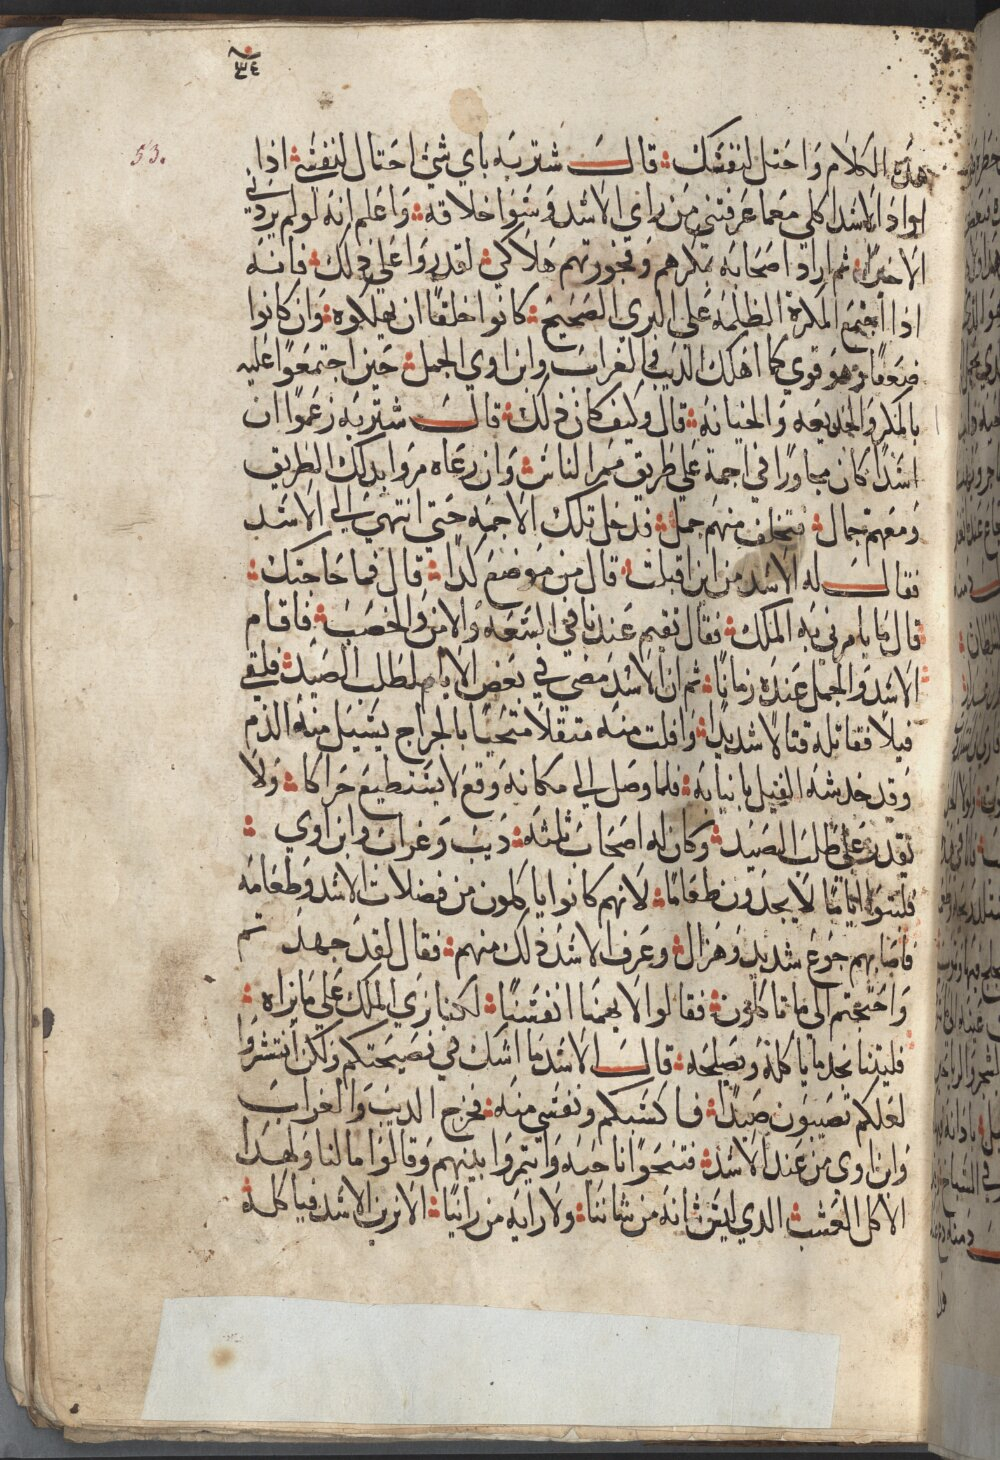 ٣٤
53.
هذه الكلام واحتل لنفسك قالت شتربه باي شئ احتال لنفسي اذا
اراد الاسد اكلي مع ما عرفتني من راي الاسد وسوا خلاقه واعلم انه لو لم يرد في
الا خيرًا ثم اراد اصحابه بمكرهم وفجورتهم هلاكي لقدروا على ذلك فانه
اذا اجتمع المكرة الظلمه على البري الصحيح كانوا خلقًا ان يهلكوه وان كانوا
ضعفا وهو قوي كما اهلك الديب والغراب وابن اوي الجمل حين اجتمعوا عليه
بالمكر والخديعه والخيانه قال وكيف كان ذلك قالت شتربه زعموا ان
اسدًا كان مجاورًا في اجمة على طريق ممر الناس وان رعاه مروا بذلك الطريق
ومعهم جمال فتخلف منهم جمل فدخل تلك الاجمه حتي انتهي الي الاسد
فقال له الاسد من اين اقبلت قال من موضع كدا قال فما حاجتك
قال ما يامرني به الملك فقال تقيم عندنا في السعه والامن والخصب فاقام
الاسد والجمل عنده زمانًا ثم ان الاسد مضي في بعض الايام لطلب الصيد فلقي
فيلًا فقاتله قتالًا شديدًا وافلت منه متقلًا متخنًا بالجراح يسيل منه الدم
وقد خدشه الفيل بانيابه فلما وصل الي مكانه وقع لا يستطيع حراكًا ولا
يقدر على طلب الصيد وكان له اصحاب ثلثه ديب وغراب وابن اوي
فلبثوا ايامًا لا يجدون طعامًا لانهم كانوا ياكلون من فضلات الاسد وطعامه
فاصابهم جوع شديد وهزال وعرف الاسد ذلك منهم فقال لقد جهدتم
واحتجتم الي ما تاكلون فقالوا لا يهمنا انفسنا لكننا نري الملك علي ما نراه
فليتنا نجد ما ياكله ويصلحه قال الاسد ما اشك في نصيحتكم ولكن انتشروا
لعلكم تصيبون صيدًا فاكسبكم ونفسي منه فخرج الديب والغراب
وابن اوي من عند الاسد فتنحوا ناحيه وايتمروا بينهم وقالوا ما لنا ولهدا
الاكل العشب الدي ليس شانه من شاننا ولا رايه من راينا الا نزين الاسد فياكله